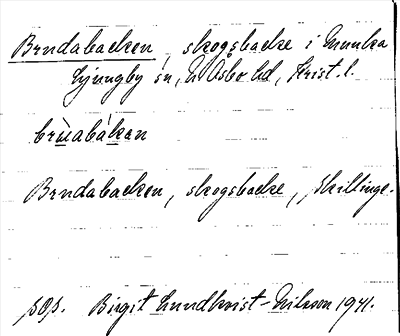 Brudabacken, skogsbacke i Munka
Ljungby sn, N. Åsbo hd, Krist. l.
brùabákan
Brudabacken, skogsbacke, Skillinge.
pop. Birgit Lundkvist-Nilsson 1941.